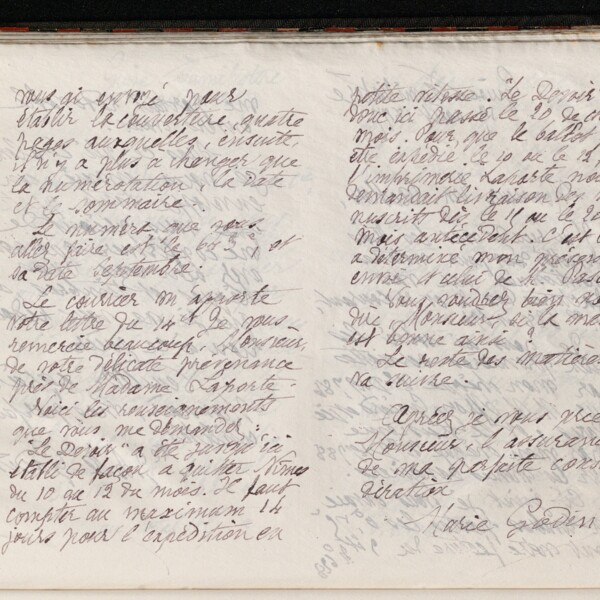 vous ai envoyé pour
établir la couverture, quatre
pages auxquelles, ensuite,
il n'y a plus à changer que
la numérotation, la date
et le sommaire.
Le numéro que vous
allez faire est le et
sa date septembre.
Le courrier m'apporte
votre lettre du 14 et. Je vous
remercie beaucoup, Monsieur,
de votre délicate prévenance
près de Madame Laporte.
Voici les renseignements
que vous me demandez :
"Le Devoir" a été jusqu'ici
établi de façon à quitter Nîmes
du 10 au 12 du mois. Il faut
compter au maximum 14
jours pour l'expédition en
petite vitesse. "Le Devoir
donc ici passé le 20 de
mois. Pour que le ballot
être expédié le 10 ou le 12,
l'imprimerie Laporte
demandait livraison des
nuscrits dès le 18 ou le 20
mois antécédent. C'est
a déterminé mon présent
envoi et celui de M. Pasc
Vous voudrez bien
dire, Monsieur, si la me
est bonne ainsi.
Le reste des matières
va suivre.
Agréez, je vous prie
Monsieur, l'assurance
de ma parfaite consi
dération
Marie Godin